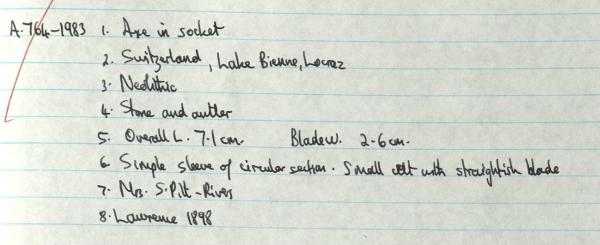 A.764-1983 1. Axe in socket
2. Switzerland, Lake Bienne, Locraz
3. Neolithic
4. Stone and antler
5. Overall L. 7.1cm. Blade W. 2.6cm.
6. Simple sleeve of circular section. Small celt with straightish blade
7. Mrs. S. Pitt-Rivers
8. Lawrence 1898